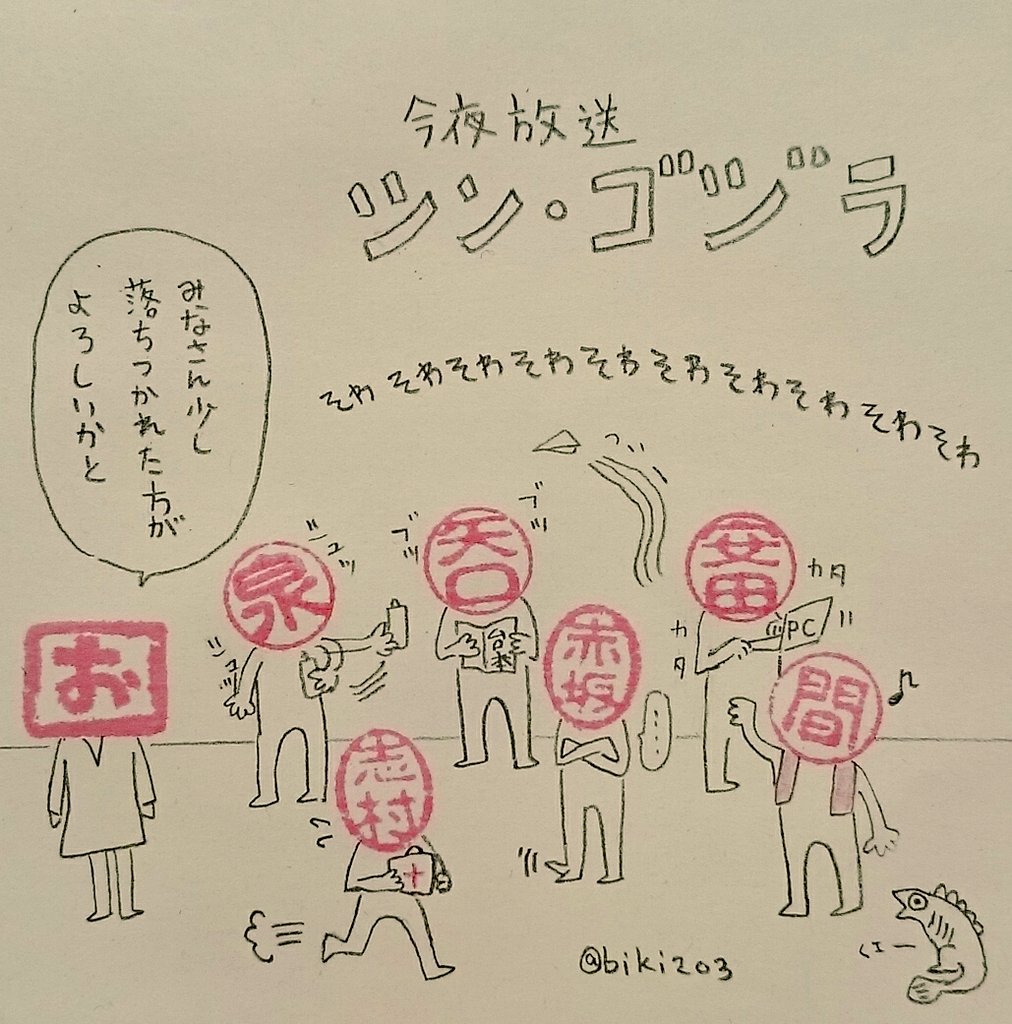 今夜放送
ツン・ゴヅラ
みなさん少し
落ちつかれた方が
よろしいかと
そわそわそわそわそわそわそわそわそわそわ
お
泉
シュッ
シュッ
矢口
ブツ
ブツ
台本
安田
カタ
カタ
PC
赤坂
…
間
♪
志村
くエー
@biki203